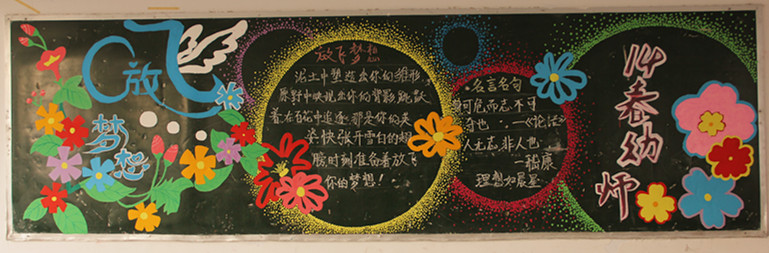 放飞
梦想
放飞梦想
泥土中塑造出你的雏形,
原野中映现出你的背影跳跃
着在白云中追逐那是你的未
来快张开雪白的翅
膀时刻准备着放飞
你的梦想!
名言名句
可危而志不可
夺也 —《论语》
人无志,非人也
—嵇康
理想如晨星
14春幼师